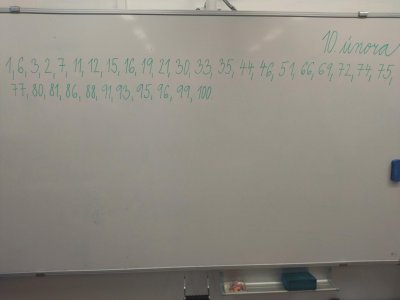 10. února
1, 6, 3, 2, 7, 11, 12, 15, 16, 19, 21, 30, 33, 35, 44, 46, 51, 66, 69, 72, 74, 75,
77, 80, 81, 86, 88, 91, 93, 95, 96, 99, 100